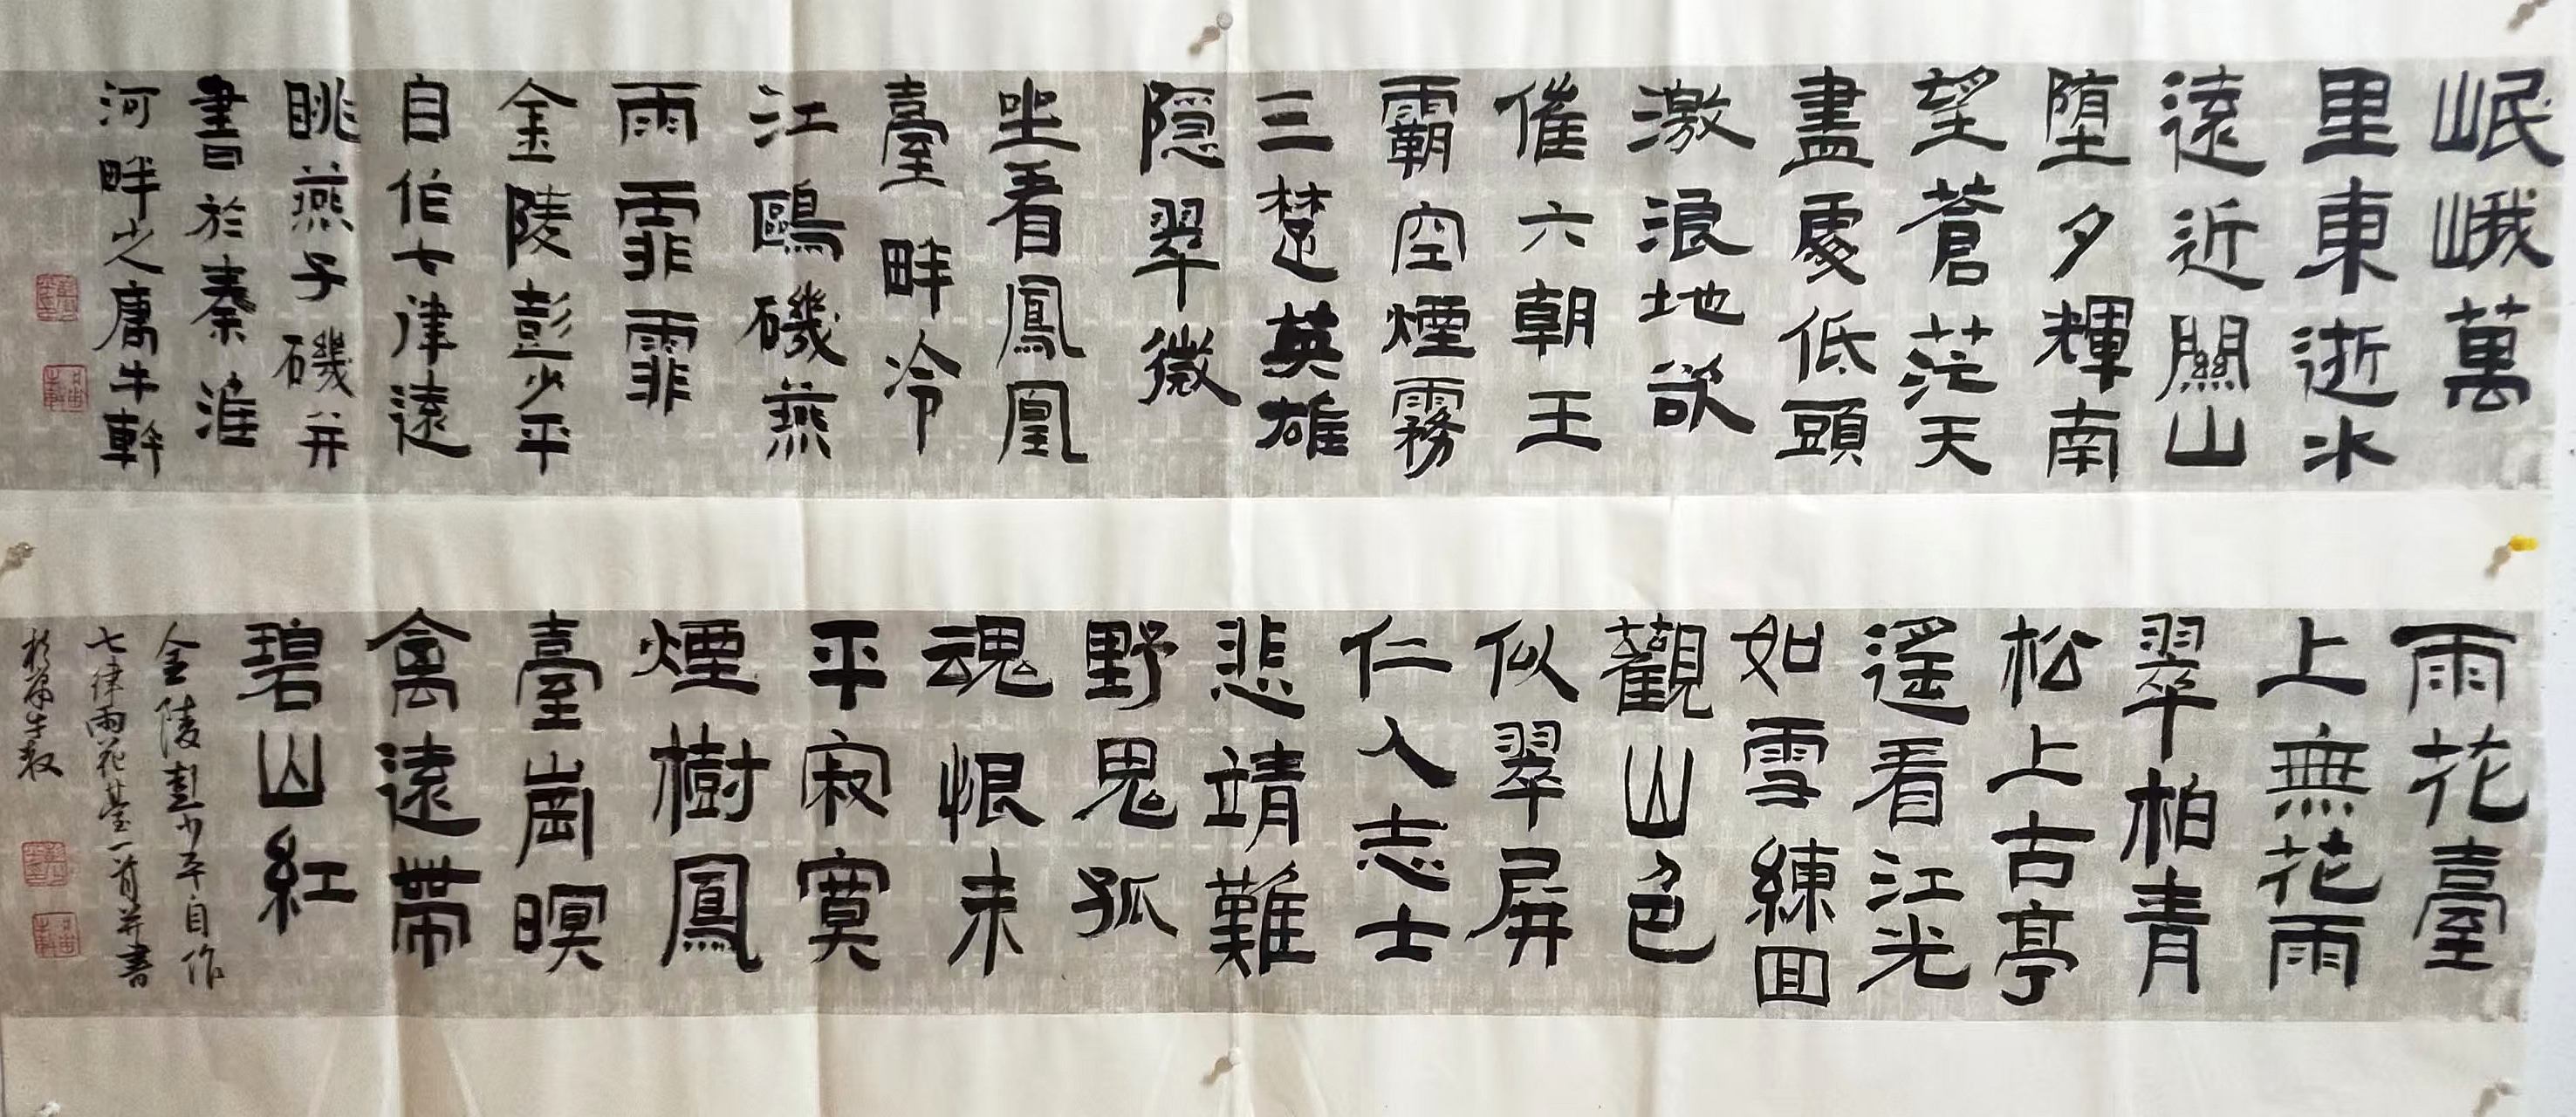 岷峨萬
里東逝水
遠近關山
堕夕輝南
望蒼茫天
盡處低頭
激浪地欲
催六朝王
霸空煙霧
三楚英雄
隱翠微
坐看鳳凰
臺畔冷
江鷗磯燕
雨霏霏
金陵彭少平
自作七律遠
眺燕子磯并
書於秦淮
河畔之庸牛軒
雨花臺
上無花雨
翠柏青
松上古亭
遙看江光
如雪練回
觀山色
似翠屏
仁人志士
悲靖難
野鬼孤
魂恨未
平寂寞
煙樹鳳
臺崗暝
禽遠帶
碧山紅
金陵彭少平自作
七律雨花臺一首并書
於庸牛軒